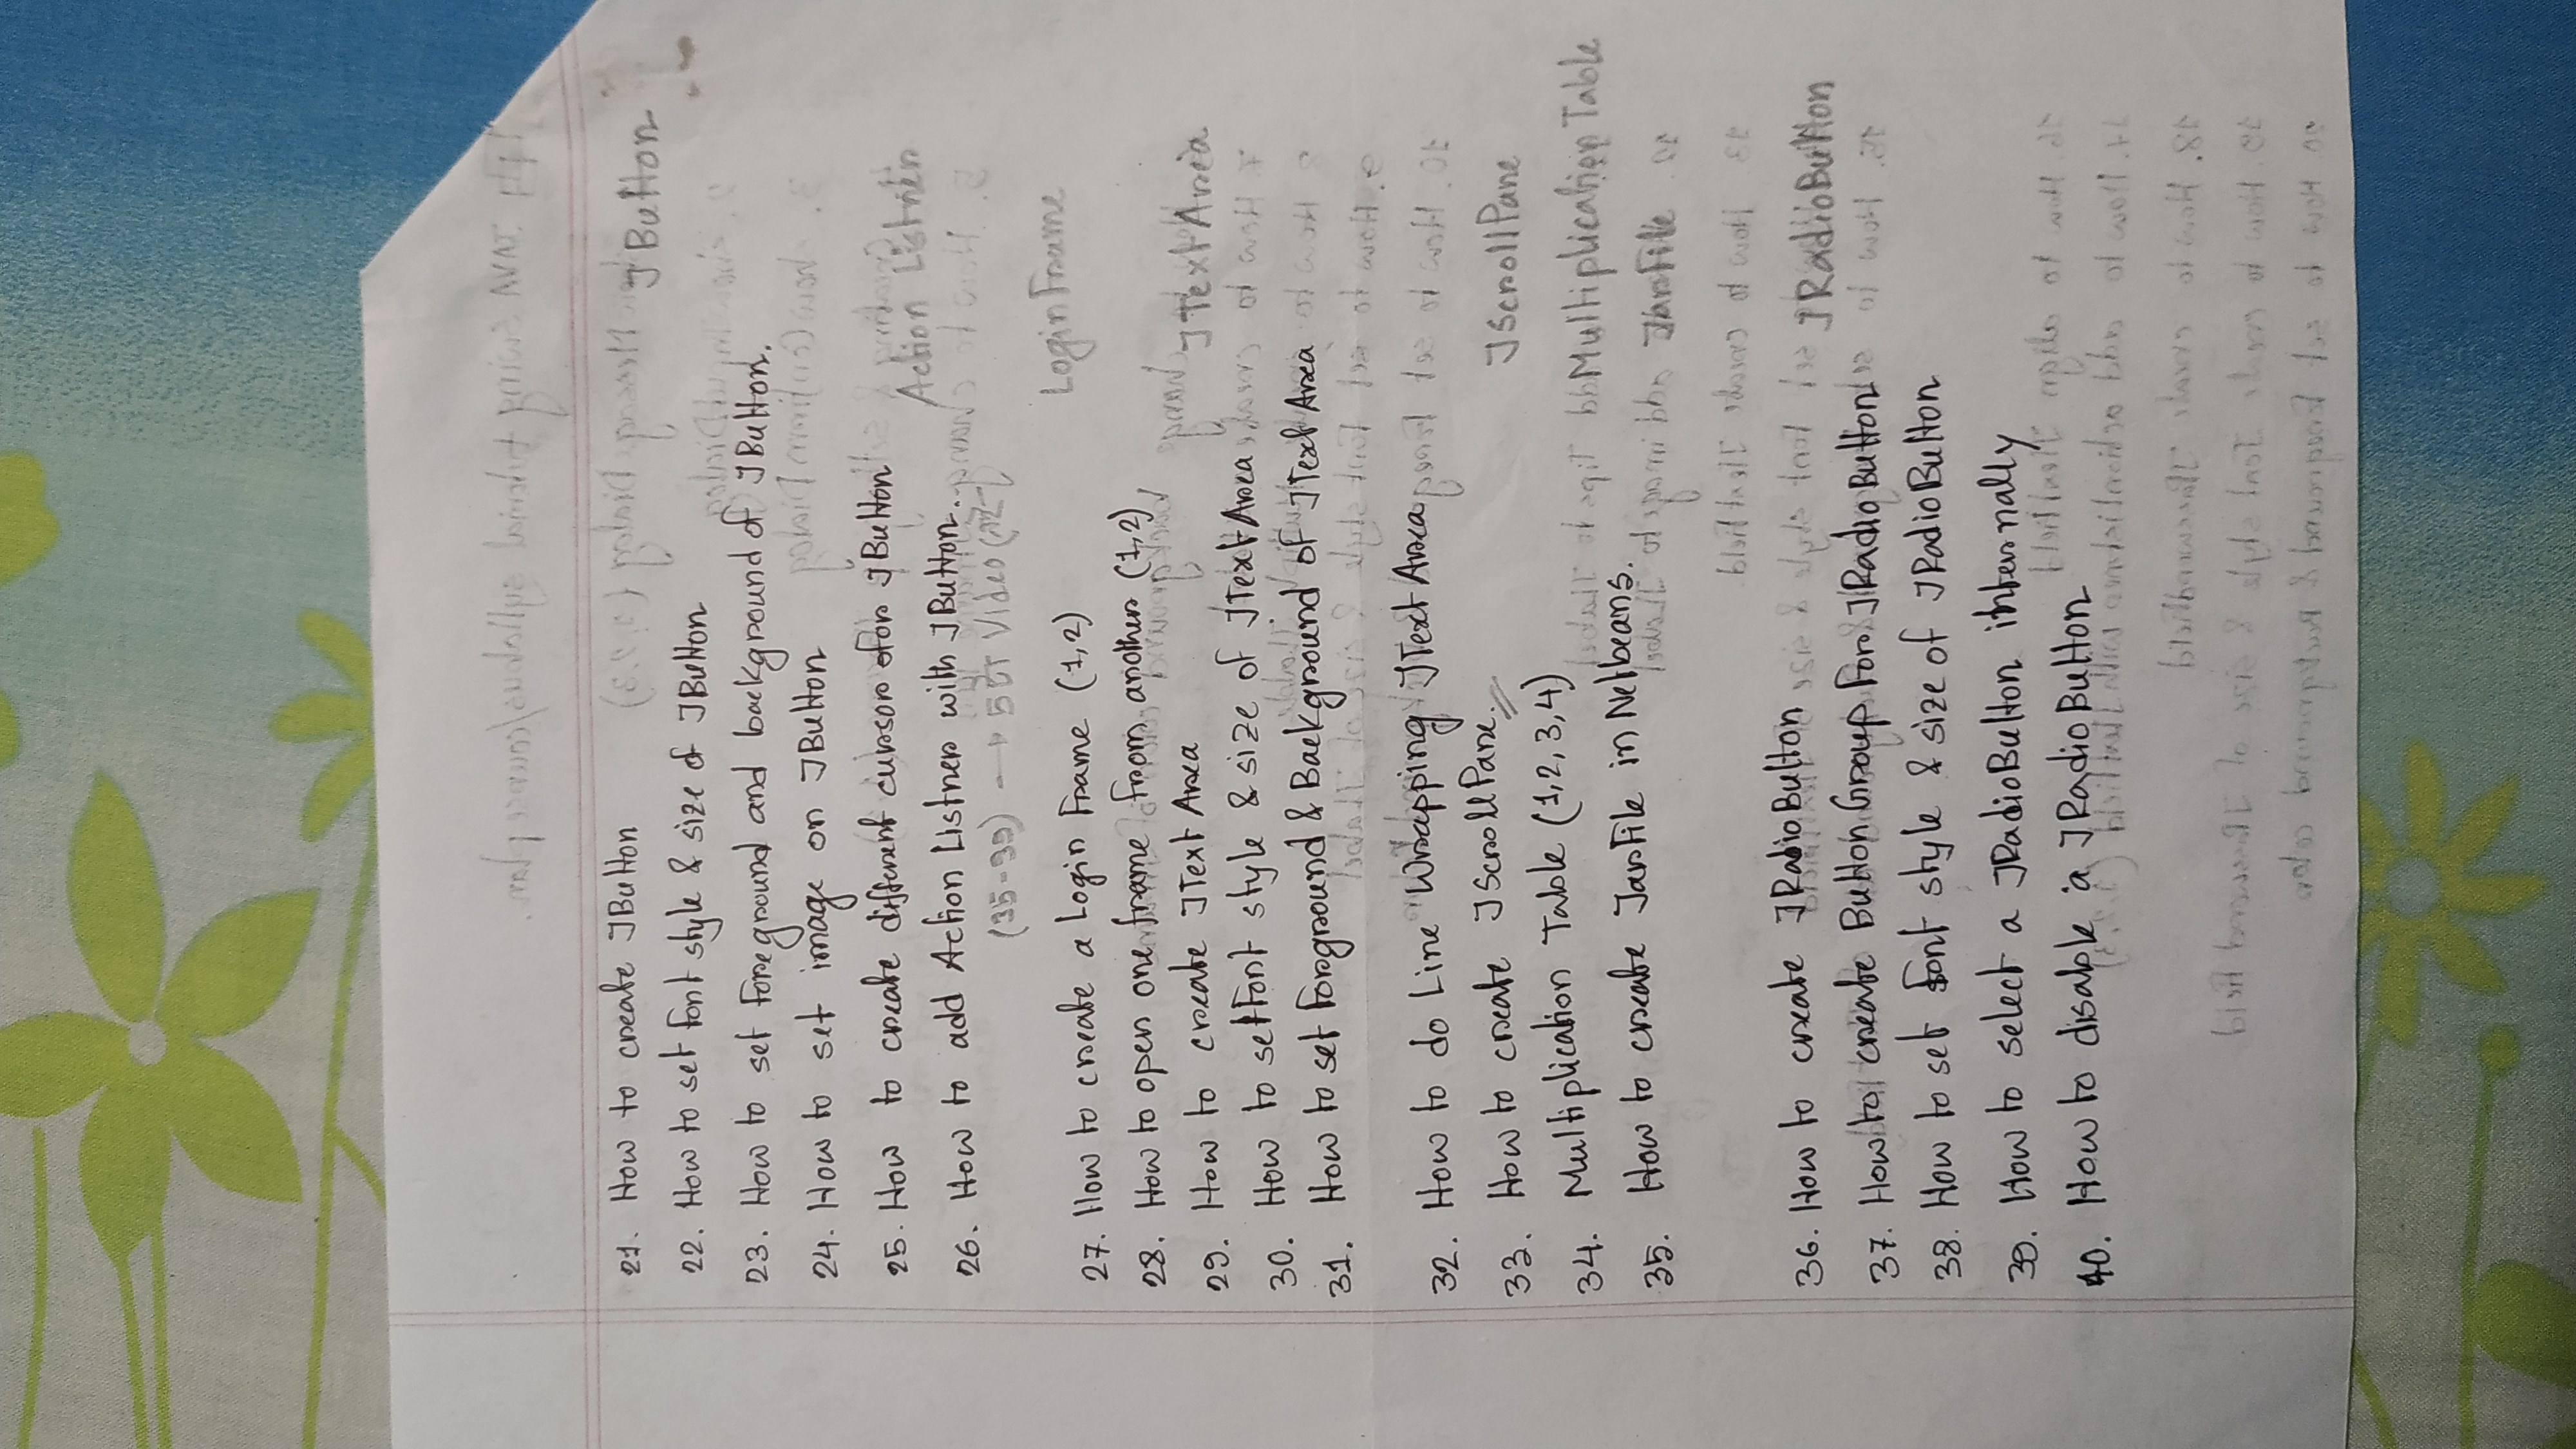 21. How to create JButton
JButton
22. How to set font style & size of JButton
23. How to set Foreground and background of JButton.
24. How to set image on JButton
25. How to create different cursor for JButton
Action Listner
26. How to add Action Listner with JButton.
(35-39) → 5 Video
Login Frame
27. How to create a Login Frame (1,2)
28. How to open one frame from another (1,2)
29. How to create JText Area
JTextArea
30. How to set Font style & size of JText Area
31. How to set Forground & Background of JText Area
32. How to do Line Wrapping JText Area
33. How to create JScrollPane.
JScrollPane
34. Multiplication Table (1,2,3,4)
Multiplication Table
35. How to create JarFile in Netbeans.
JarFile
36. How to create JRadioButton
JRadioButton
37. How to create Button Group For JRadio Button
38. How to set font style & size of JRadioButton
39. How to select a JRadioButton internally
40. How to disable a JRadio Button